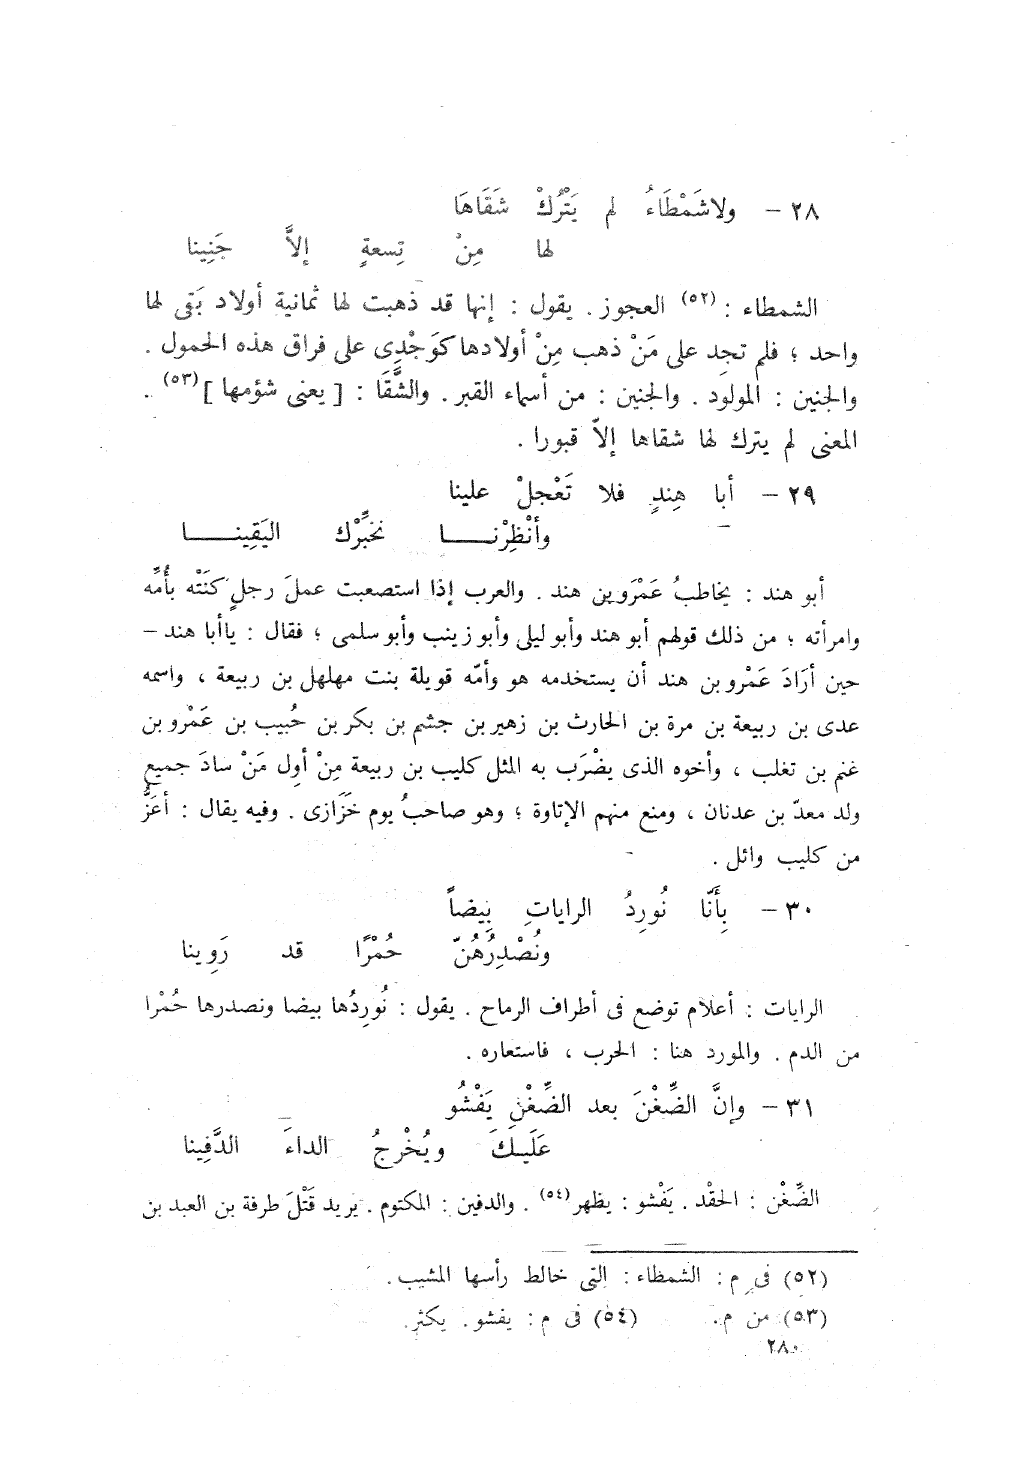 ٢٨ – ولاشَمْطَاءُ لم يَتْرُكْ شَقَاهَا
لها مِنْ تِسعةٍ إلاَّ جَنِينا
الشمطاء :(٥٢) العجوز . يقول : إنها قد ذهبت لها ثمانية أولاد بَقى لها
واحد ؛ فلم تجِد على مَنْ ذهب مِنْ أولادها كوَجْدِى على فراق هذه الحمول .
والجنين : المولود . والجنين : من أسماء القبر . والشَّقَا : [ يعنى شؤمها ](٥٣) .
المعنى لم يترك لها شقاها إلاّ قبورا .
٢٩ – أبا هِندٍ فلا تَعْجلْ علينا
وأنْظِرْنـــا نخبِّرْك اليَقِينـــا
أبو هند : يخاطبُ عَمْرَو بن هند . والعرب إذا استصعبت عملَ رجلٍ كنَتْه بأُمِّه
وامرأته ؛ من ذلك قولهم أبو هند وأبو ليلى وأبو زينب وأبو سلمى ؛ فقال : ياأبا هند –
حين أرَادَ عَمْرو بن هند أن يستخدمه هو وأمّه قويلة بنت مهلهل بن ربيعة ، واسمه
عدى بن ربيعة بن مرة بن الحارث بن زهير بن جشم بن بكر بن حُبيب بن عَمْرو بن
غنم بن تغلب ، وأخوه الذى يضْرَب به المثل كليب بن ربيعة مِنْ أول مَنْ سادَ جميع
ولد معدّ بن عدنان ، ومنع منهم الإتاوة ؛ وهو صاحبُ يوم خَزَازى . وفيه يقال : أعَزُّ
من كليب وائل .
٣٠ – بِأَنّا نُورِدُ الراياتِ بِيضاً
ونُصْدِرُهُنّ حُمْرًا قد رَوِينا
الرايات : أعلام توضع فى أطراف الرماح . يقول : نُورِدُها بيضا ونصدرها حُمْرا
من الدم . والمورد هنا : الحرب ، فاستعاره .
٣١ – وإنَّ الضِّغْنَ بعد الضِّغْنِ يَفْشُو
عَلَيكَ ويُخْرجُ الداءَ الدَّفِينا
الضِّغْن : الحقْد . يَفْشو : يظهر(٥٤) . والدفين : المكتوم . يريد قَتْلَ طرفة بن العبد بن
(٥٢) فى م : الشمطاء : التى خالط رأسها المشيب .
(٥٣) من م . (٥٤) فى م : يفشو . يكثر .
٢٨٠